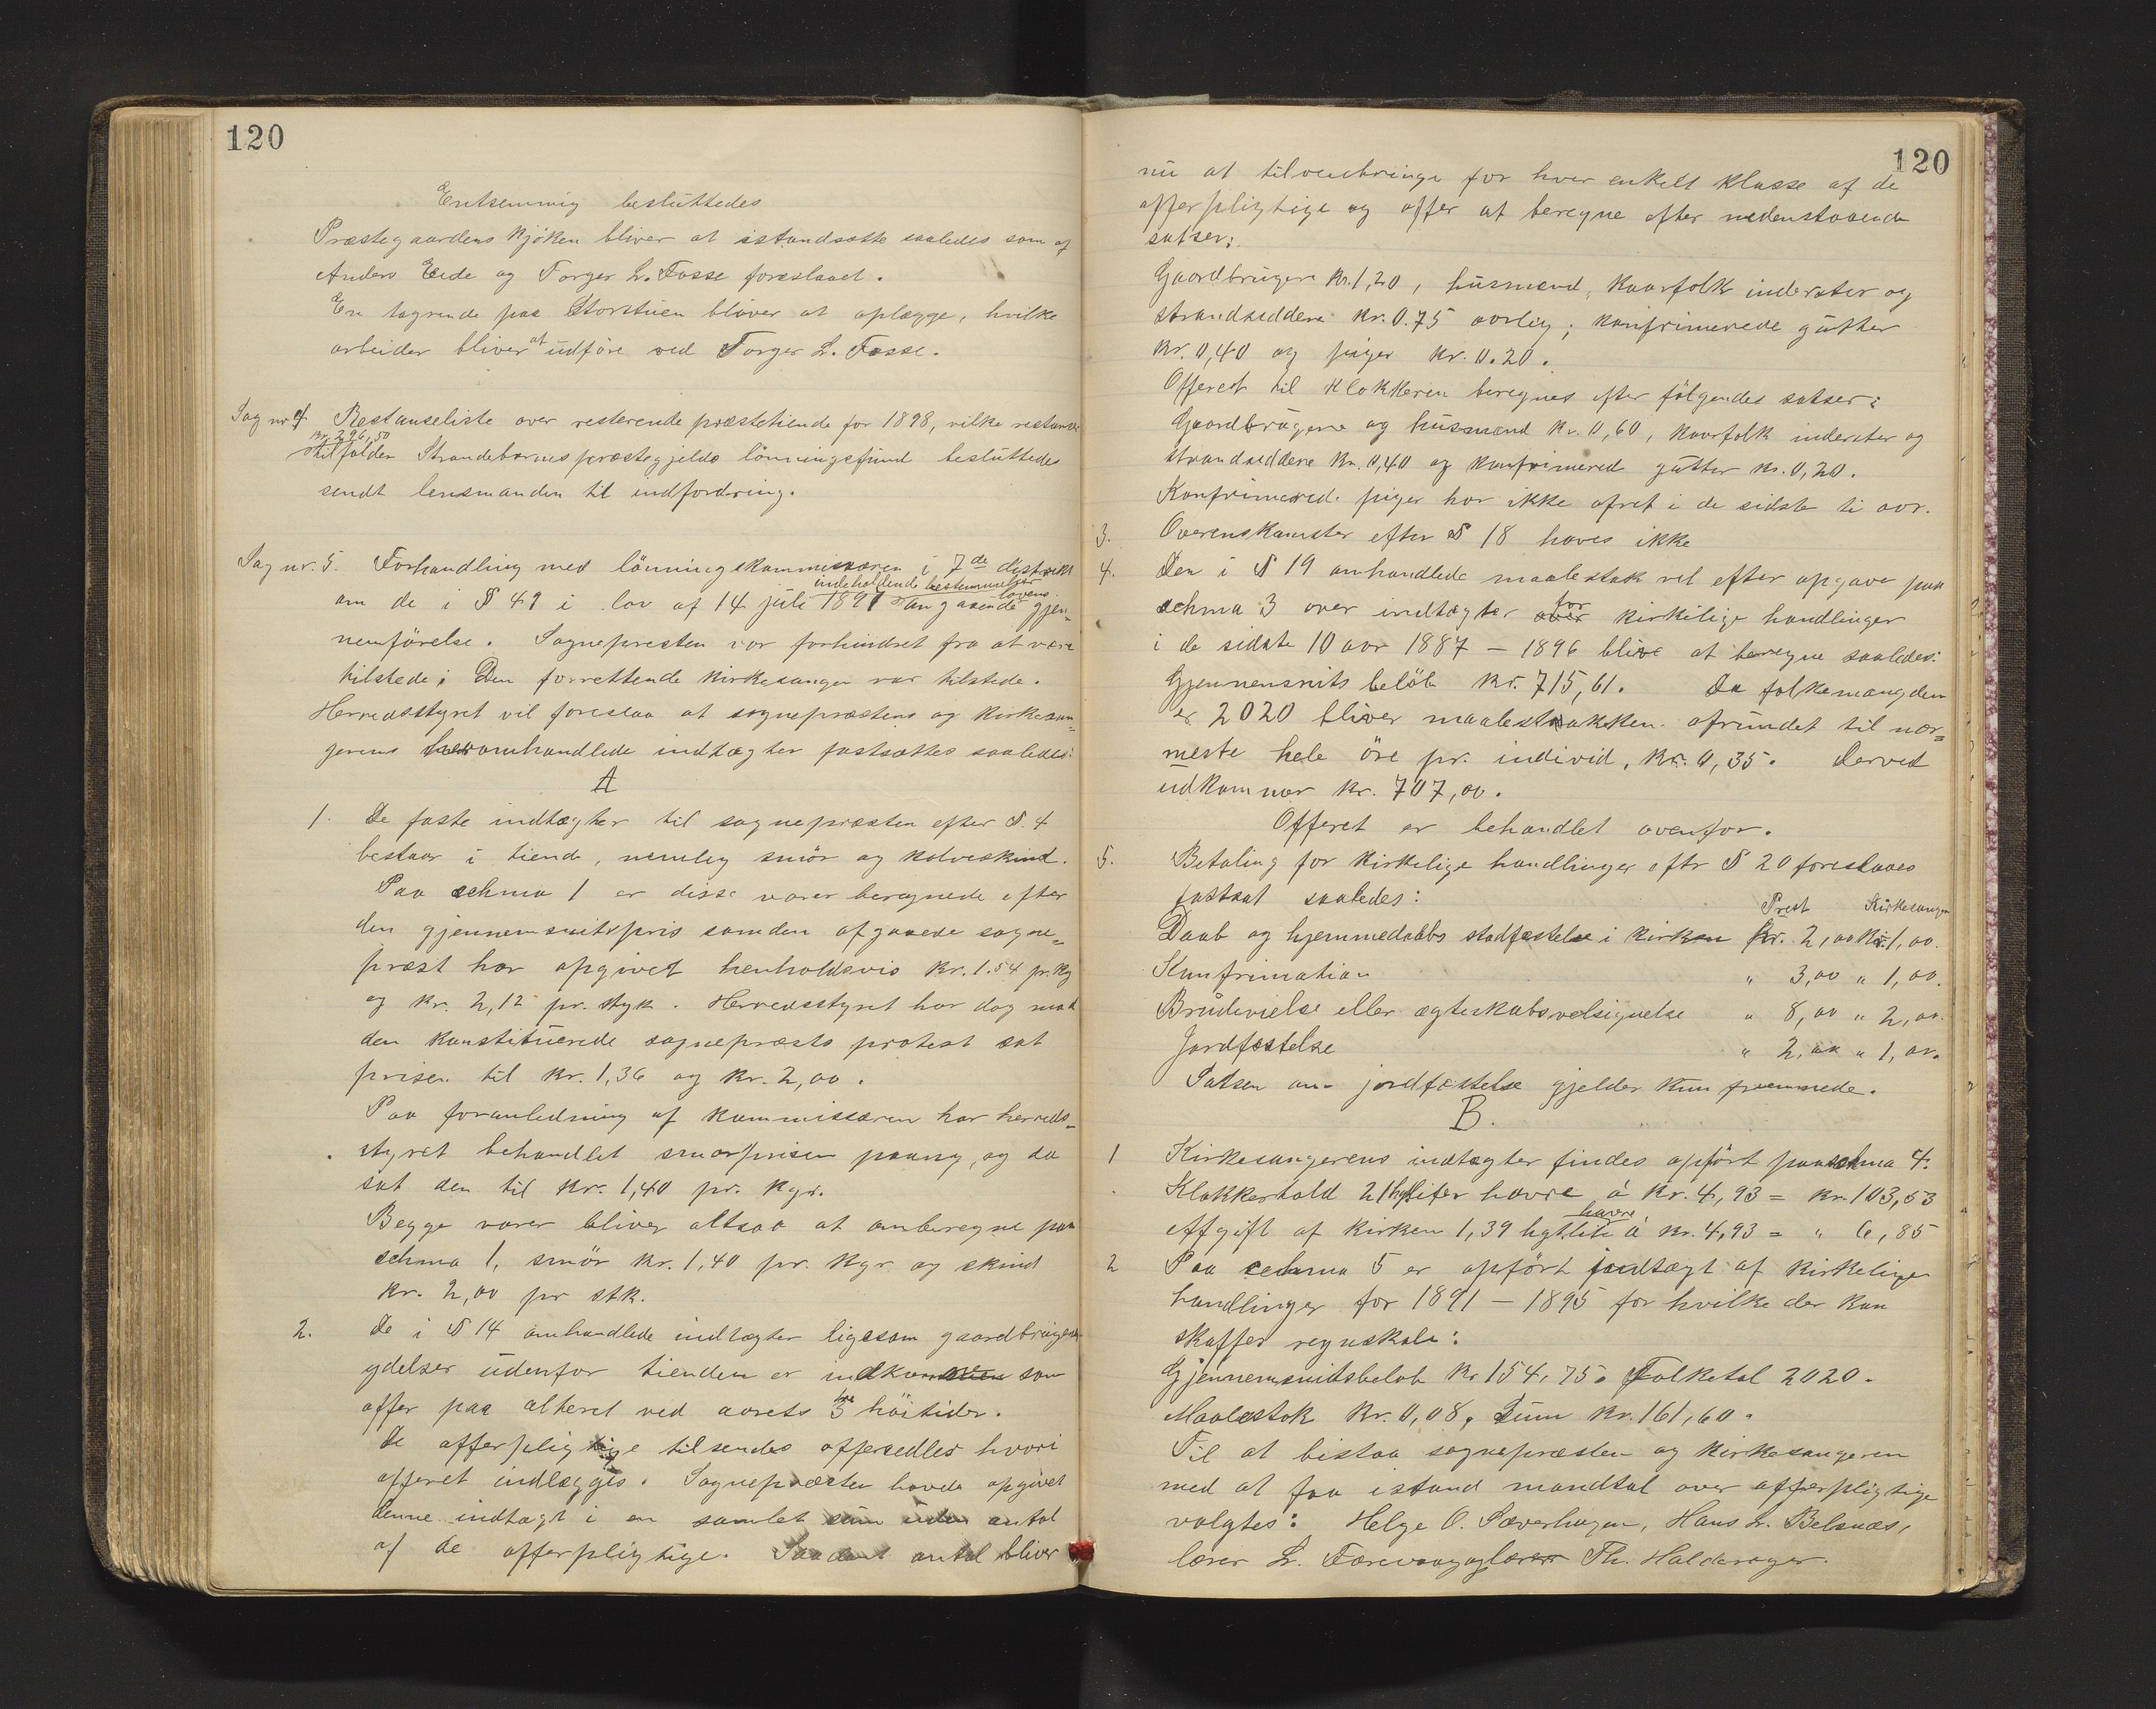 120
Enstemmig besluttedes
Præstegaardens kjöken bliver at istandsætte saaledes som af
Anders Eide og Torger L. Fosse foreslaaet.
En tagrende paa Storstuen bliver at oplægge, hvilke
arbeider bliver at udföre ved Torger L. Fosse.
Sag nr 4. Restanseliste over resterende præstetiende for 1898, vilke restanser
kr. 296,50
tilfalder Strandebarms præstegjelds lönningsfund besluttedes
sendt lensmanden til indfordring.
Sag nr. 5. Forhandling med lönningskommissæren i 7de distrikt
indeholdende bestemmelser lovens
om de i § 49 i lov af 14 juli 1897 angaaende gjen-
nemförelse. Sognepresten var forhindret fra at være
tilstede; Den forrettende kirkesanger var tilstede.
Herredsstyret vil foreslaa at sognepræstens og kirkesan-
gerens heromhandlede indtægter fastsættes saaledes:
A
1. De faste indtægter til sognepræsten efter §. 4
bestaar i tiende, nemlig smör og kalveskind.
Paa schma 1 er disse varer beregnede efter
den gjennemsnitspris som den afgaaede sogne-
præst har opgivet henholdsvis kr. 1.54 pr. kg
og kr. 2,12 pr. styk. Herredsstyret har dog mod
den konstituerede sognepræsts protest sat
prisen til kr. 1,36 og kr. 2,00.
Paa foranledning af kommissæren har herreds-
styret behandlet smørprisen paany, og da
sat den til kr. 1,40 pr. kgr.
Begge varer bliver altsaa at omberegne paa
schma 1, smör kr. 1,40 pr. kgr. og skind
kr. 2,00 pr stk.
2. De i § 14 omhandlede indtægter ligesom gaardbrugernes
ydelser udenfor tienden er indkommen som
offer paa alteret ved aarets 3 höitider.
De offerpligtige tilsendes offersedler hvori
offeret indlægges. Sognepræsten havde opgivet
denne indtægt i en samlet sum uden antal
af de offerpligtige. Saadant antal bliver
120
nu at tilveiebringe for hver enkelt klasse af de
offerpligtige og offer at beregne efter nedenstaaende
satser:
Gaardbrugere kr. 1,20, husmænd, kaarfolk inderster og
strandsiddere kr. 0.75 aarlig; konfrimerede gutter
kr. 0,40 og piger kr. 0.20.
Offeret til klokkeren beregnes efter fölgendes satser:
Gaardbrugere og husmænd kr. 0,60, kaarfolk inderster og
strandsiddere kr. 0,40 og konfrimered gutter kr. 0,20.
Konfrimerede piger har ikke ofret i de sidste ti aar.
3. Overenskomster efter § 18 haves ikke
4. Den i § 19 omhandlede maalestok vil efter opgave paa
schma 3 over indtægter over for kirkilige handlinger
i de sidste 10 aar 1887 – 1896 blive at beregne saaledes:
Gjennensnits belöb kr. 715,61. Da folkemængden
er 2020 bliver maalestokken afrundet til nær-
meste hele öre pr. individ, kr. 0,35. Derved
udkommer kr. 707,00.
Offeret er behandlet ovenfor.
5. Betaling for kirkelige handlinger eftr § 20 foreslaaes
fastsat saaledes:
Prest Kirkesanger
Daab og hjemmedaabs stadfæstelse i kirken kr. 2,00 kr. 1,00.
Kunfrimation " 3,00 " 1,00.
Brudevielse eller ægteskabsvelsignelse " 8,00 " 2,00.
Jordfæstelse " 2,00 " 1,00.
Satsen om jordfæstelse gjelder kun fremmede.
B.
1 Kirkesangerens indtægter findes opfört paa schma 4.
Klokkertold 21 hgliter havre á kr. 4,93 = kr. 103,53
havre
Afgift af kirken 1,39 hgtlite á kr. 4,93 = " 6,85
2 Paa schma 5 er opfört indtægt af kirkelige
handlinger for 1891 – 1895 for hvilke der kan
skaffes regnskab:
Gjennemsnitsbelöb kr 154,75. Folketal 2020.
Maalestok kr. 0,08, Sum kr. 161,60.
Til at bistaa sognepræsten og kirkesangeren
med at faa istand mandtal over offerpligtige
valgtes: Helge O. Sæverhagen, Hans L. Belsnæs,
lærer L. Færevaag og lærer Th. Haldorager.